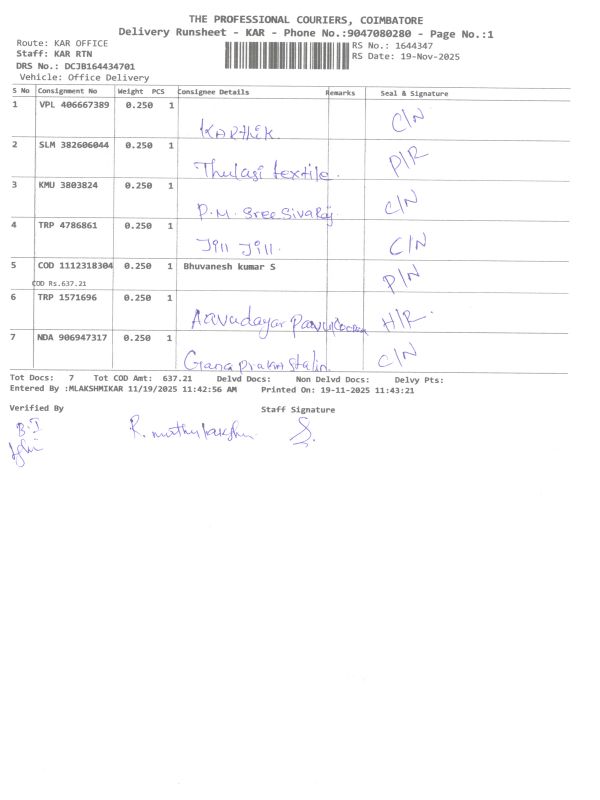 THE PROFESSIONAL COURIERS, COIMBATORE
Delivery Runsheet - KAR - Phone No.:9047080280 - Page No.:1
Route: KAR OFFICE
Staff: KAR RTN
DRS No.: DCJB164434701
Vehicle: Office Delivery
RS No.: 1644347
RS Date: 19-Nov-2025
S No Consignment No Weight PCS Consignee Details Remarks Seal & Signature
1 VPL 406667389 0.250 1 Karthik. C/N
2 SLM 382606044 0.250 1 Thulasi textile. P/R
3 KMU 3803824 0.250 1 P.M. Sree Sivaraj C/N
4 TRP 4786861 0.250 1 Jill Jill. C/N
5 COD 1112318304 0.250 1 Bhuvanesh kumar S P/N
COD Rs.637.21
6 TRP 1571696 0.250 1 Aavudayar H/R.
7 NDA 906947317 0.250 1 Stalin C/N
Tot Docs: 7 Tot COD Amt: 637.21 Delvd Docs: Non Delvd Docs: Delvy Pts:
Entered By :MLAKSHMIKAR 11/19/2025 11:42:56 AM Printed On: 19-11-2025 11:43:21
Verified By Staff Signature
B.I R. muthulakshmi S.